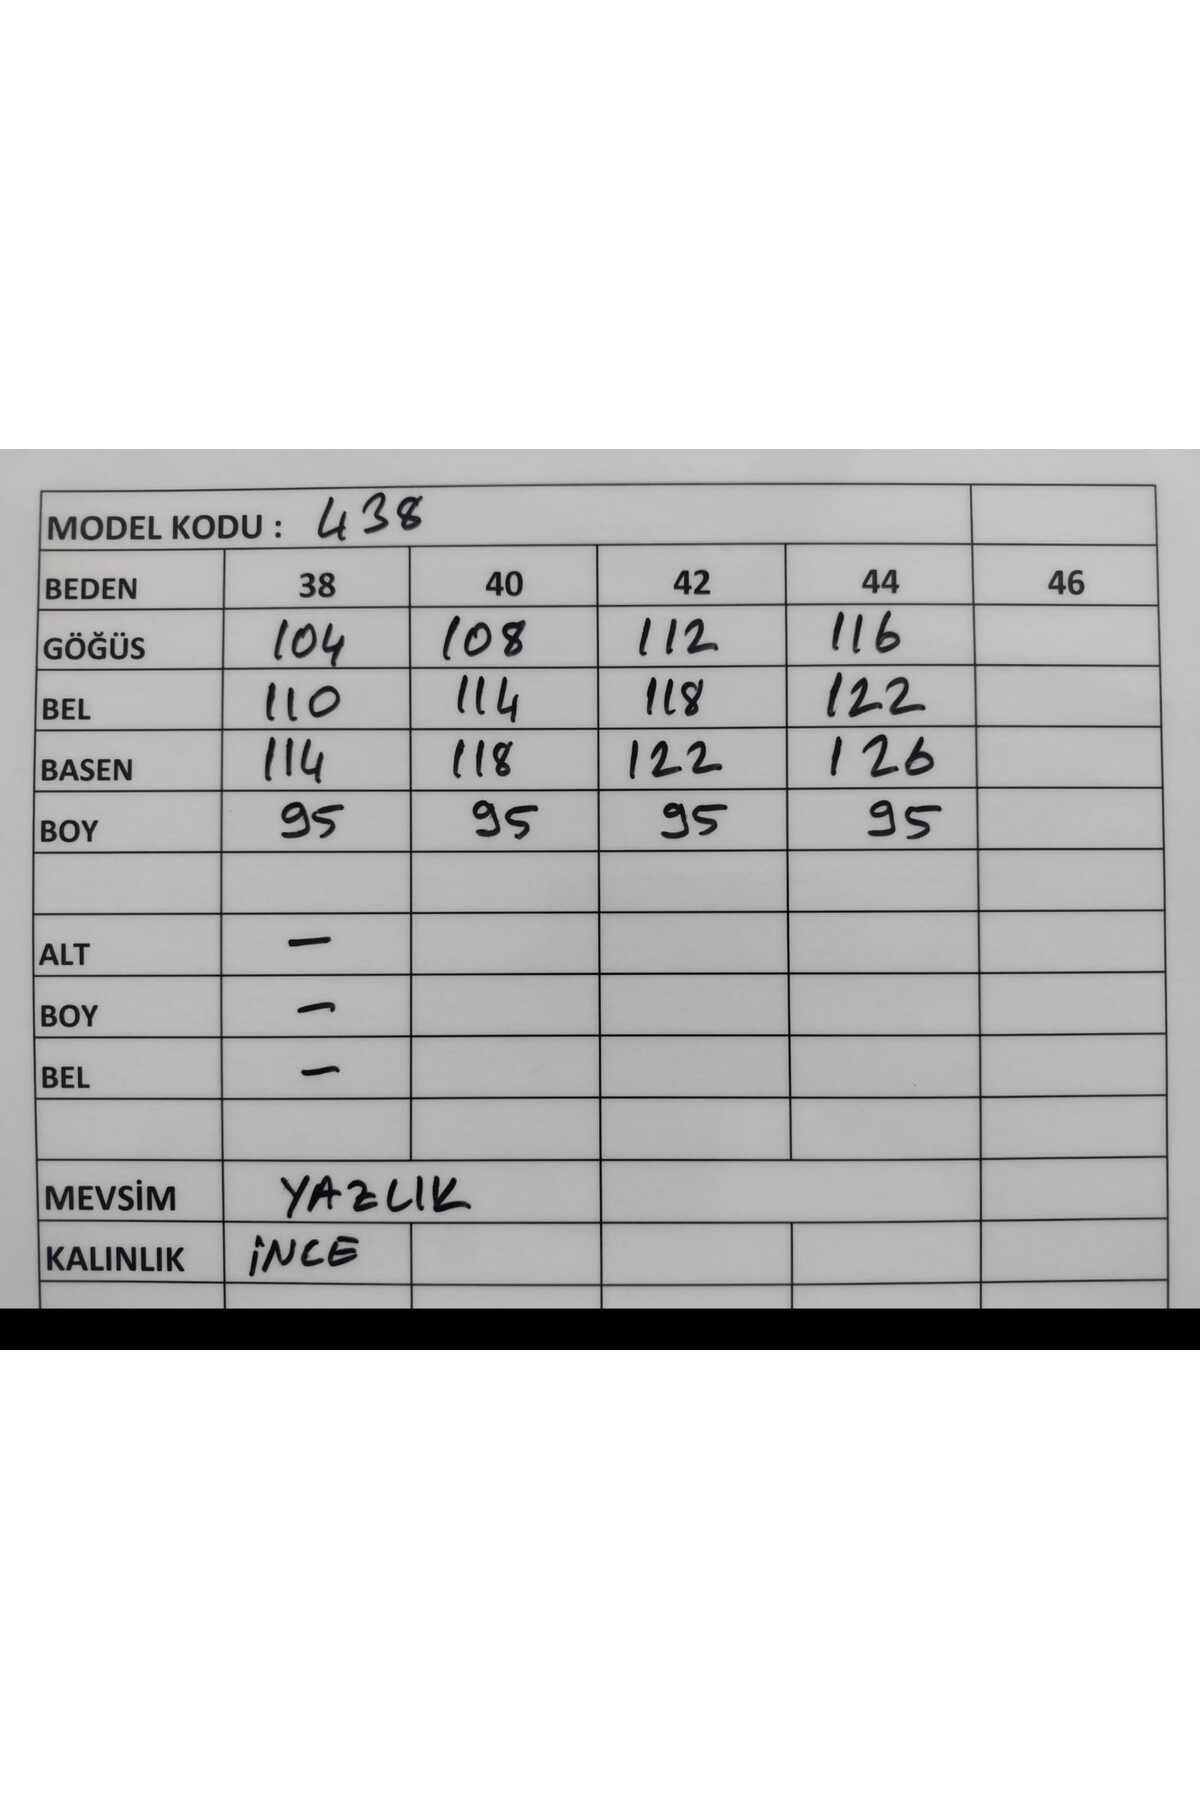 MODEL KODU : 438
BEDEN 38 40 42 44 46
GÖĞÜS 104 108 112 116
BEL 110 114 118 122
BASEN 114 118 122 126
BOY 95 95 95 95
ALT –
BOY –
BEL –
MEVSİM YAZLIK
KALINLIK İNCE